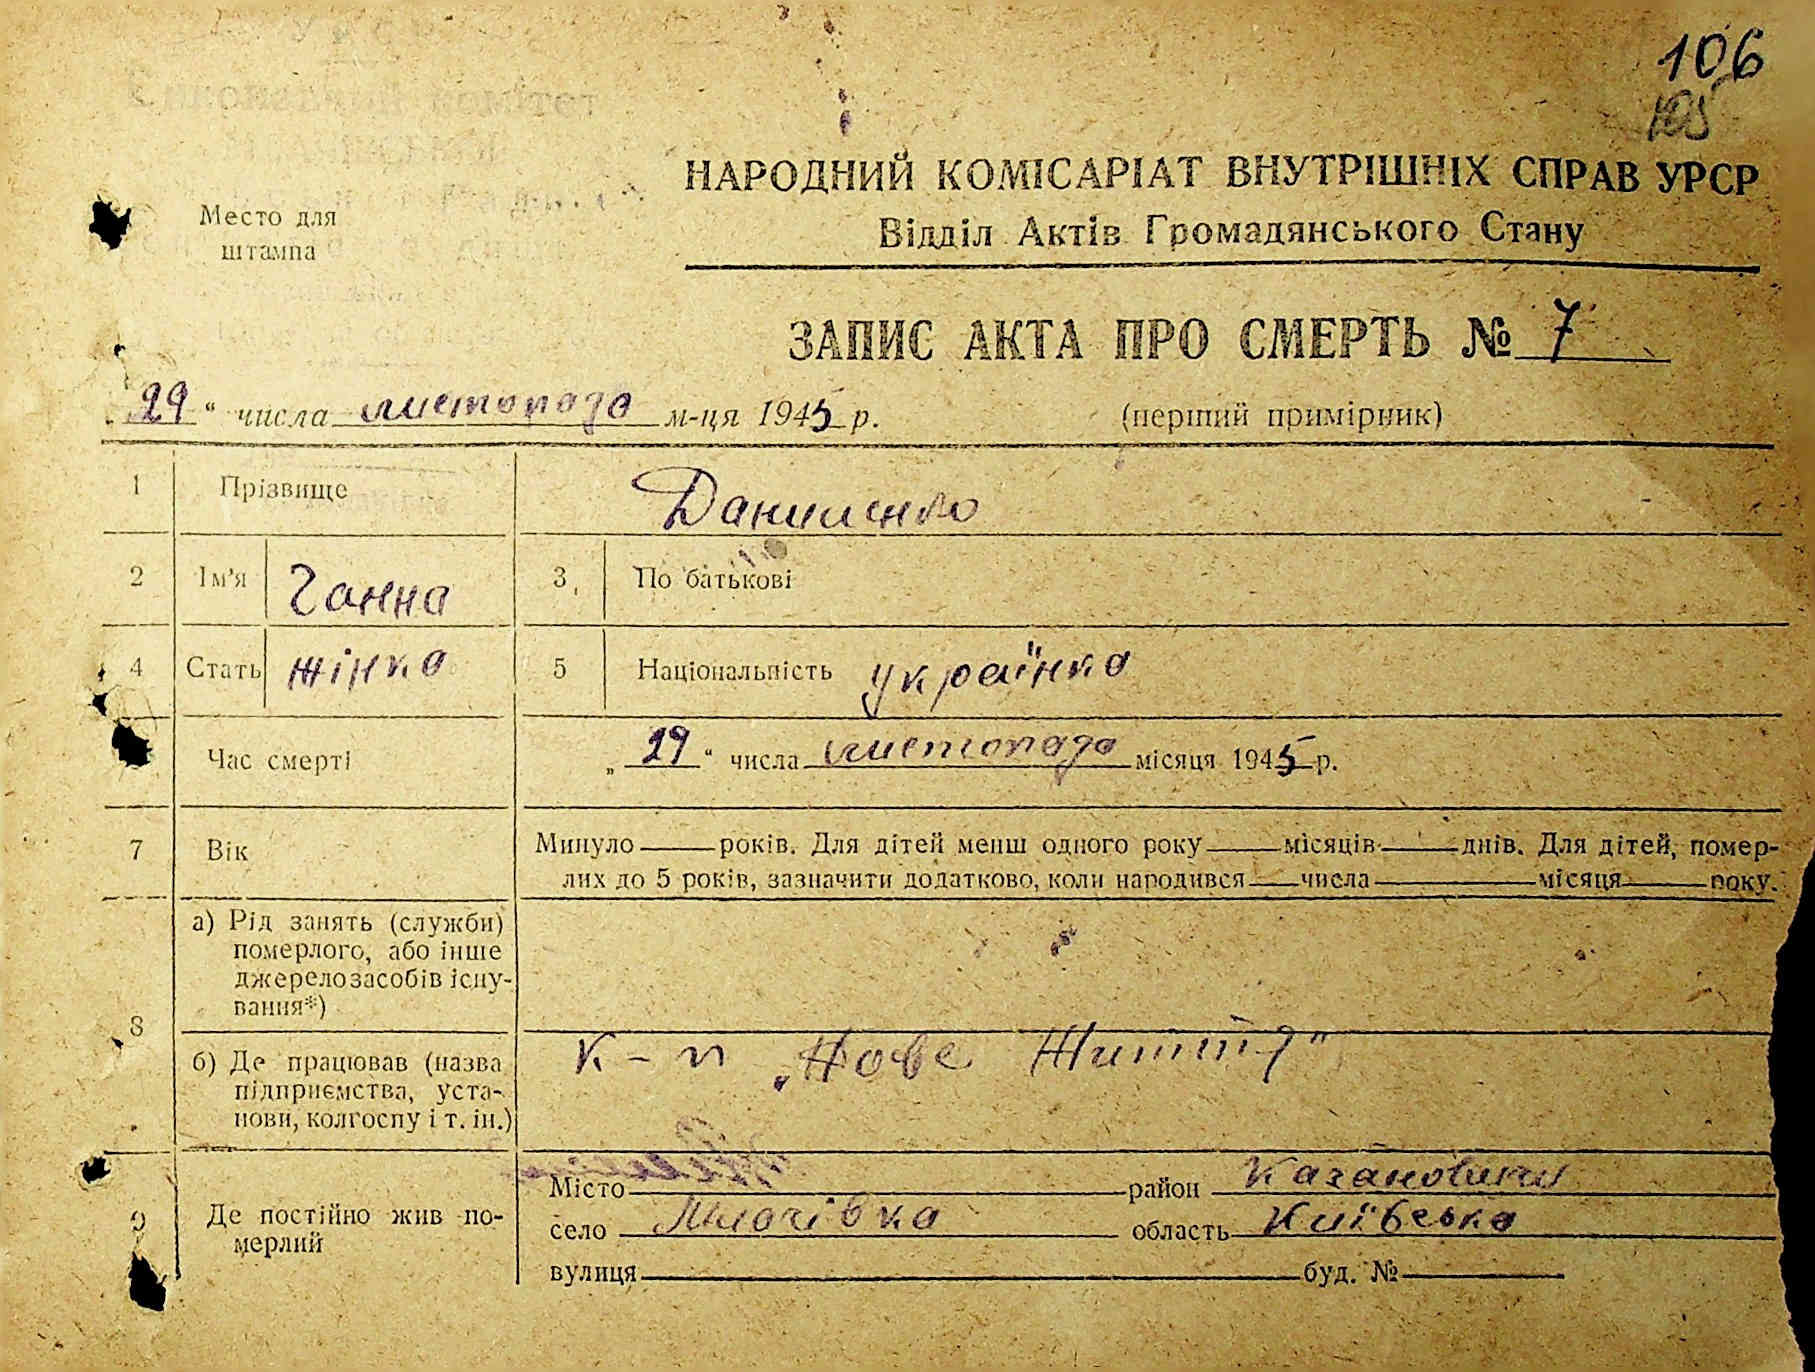 106
105
Место для
штампа
НАРОДНИЙ КОМІСАРІАТ ВНУТРІШНІХ СПРАВ УРСР
Відділ Актів Громадянського Стану
ЗАПИС АКТА ПРО СМЕРТЬ № 7
29 " числа листопада м-ця 1945 р. (перший примірник)
1 Прізвище Даниленко
2 Ім'я Ганна 3 По батькові
4 Стать жінка 5 Національність українка
Час смерті „ 29 " числа листопада місяця 1945 р.
7 Вік Минуло років. Для дітей менш одного року місяців днів. Для дітей, помер-
лих до 5 років, зазначити додатково, коли народився числа місяця року.
8 а) Рід занять (служби)
померлого, або інше
джерело засобів існу-
вання*)
б) Де працював (назва
підприємства, уста-
нови, колгоспу і т. ін.)
к-п „Нове Життя"
9 Де постійно жив по-
мерлий
Місто район
село область Київська
вулиця буд. №